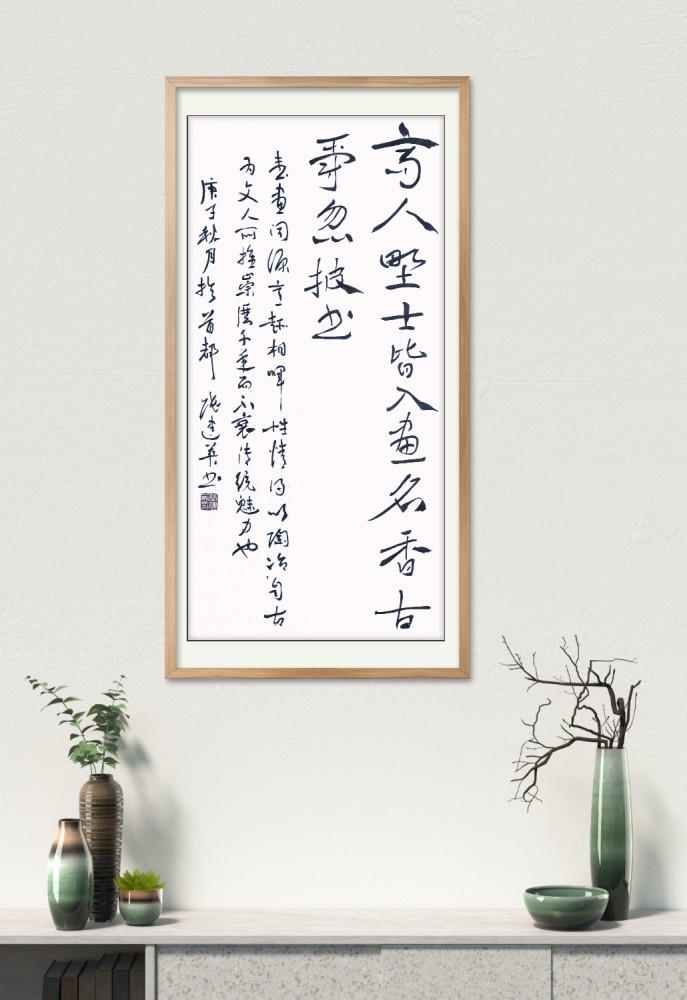 高人野士皆入画名香古
彝忽披书
画同源相晖性情得以陶冶自古
为文人所推崇历千年而不衰传统魅力也
庚子秋月於首都 张英书